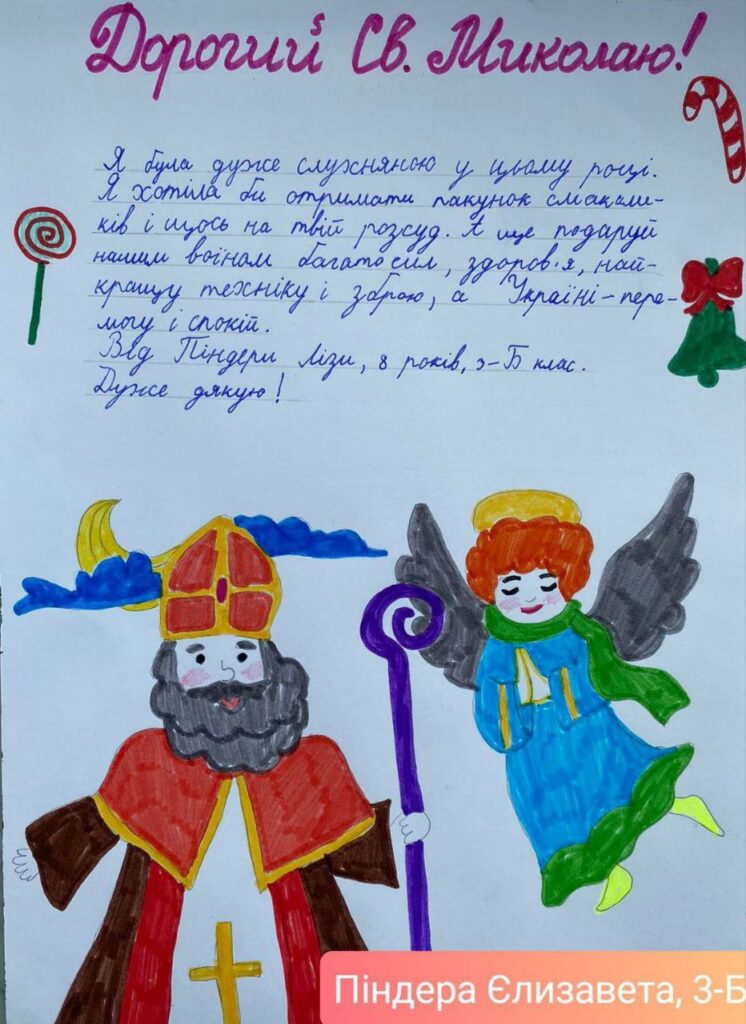 Дорогий Св. Миколаю!
Я була дуже слухняною у цьому році.
Я хотіла би отримати пакунок смаколи-
ків і щось на твій розсуд. А ще подаруй
нашим воїнам багато сил, здоров'я, най-
кращу техніку і зброю, а Україні - пере-
могу і спокій.
Від Піндери Лізи, 8 років, 3-Б клас.
Дуже дякую!
Піндера Єлизавета, 3-Б